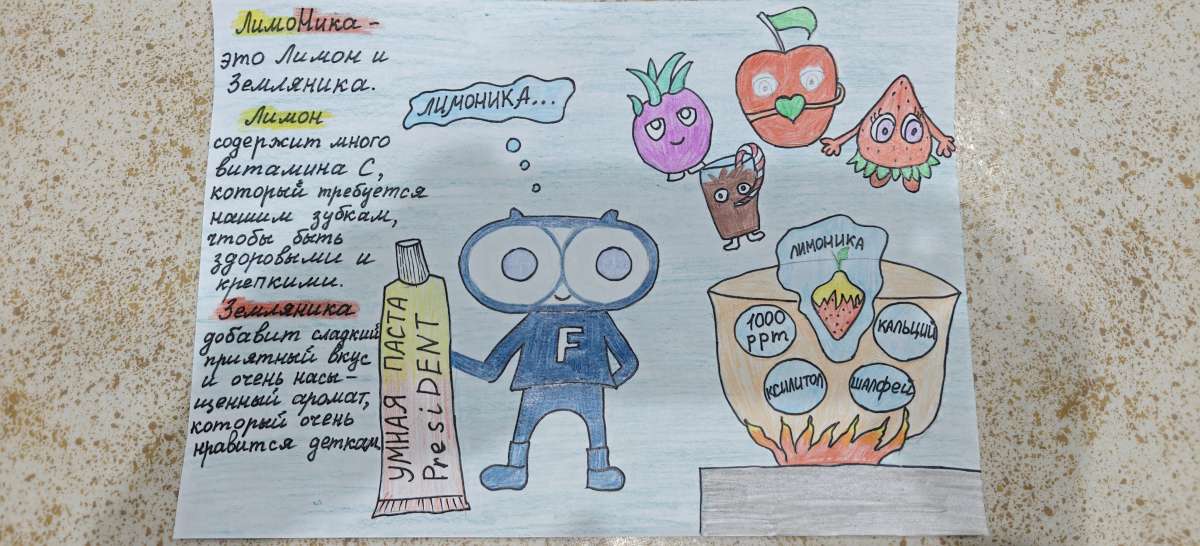 ЛимоНика -
это Лимон и
Земляника.
Лимон
содержит много
витамина С,
который требуется
нашим зубкам,
чтобы быть
здоровыми и
крепкими.
Земляника
добавит сладкий
приятный вкус
и очень насы-
щенный аромат,
который очень
нравится деткам
ЛИМОНИКА...
УМНАЯ ПАСТА
PresiDENT
F
ЛИМОНИКА
1000
ppm
КАЛЬЦИЙ
КСИЛИТОЛ
ШАЛФЕЙ